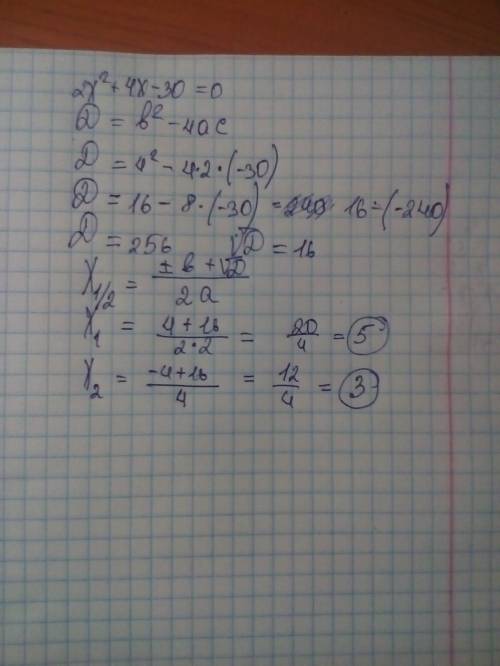 2x² + 4x - 30 = 0
D = b² - 4ac
D = 4² - 4·2·(-30)
D = 16 - 8·(-30) = 16-(-240)
D = 256 √D = 16
X₁/₂ = (± b + √D) / 2a
X₁ = (4 + 16) / (2·2) = 20/4 = 5
X₂ = (-4+16) / 4 = 12/4 = 3